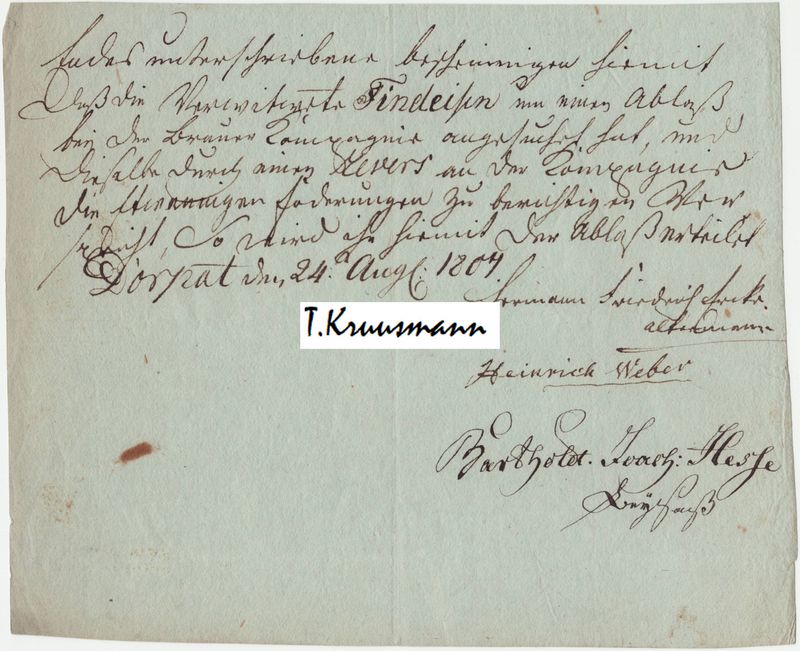 Endes unterschriebene bescheinnigen hiemit
daß die Verwitwete Findeisin um einen Ablaß
bey der Brauer Compagnie angesuchet hat, und
dieselbe durch einen Revers an der Compagnie
die foderungen zu berichtigen Ver
spricht, So wird ihr hiemit der Ablaß erteilet
Dorpat den 24. Augt: 1804
Hermann Friedrich
altermann
Heinrich Weber
Barthold. Joach: Hesse
Beysitz
T.Kruusmann